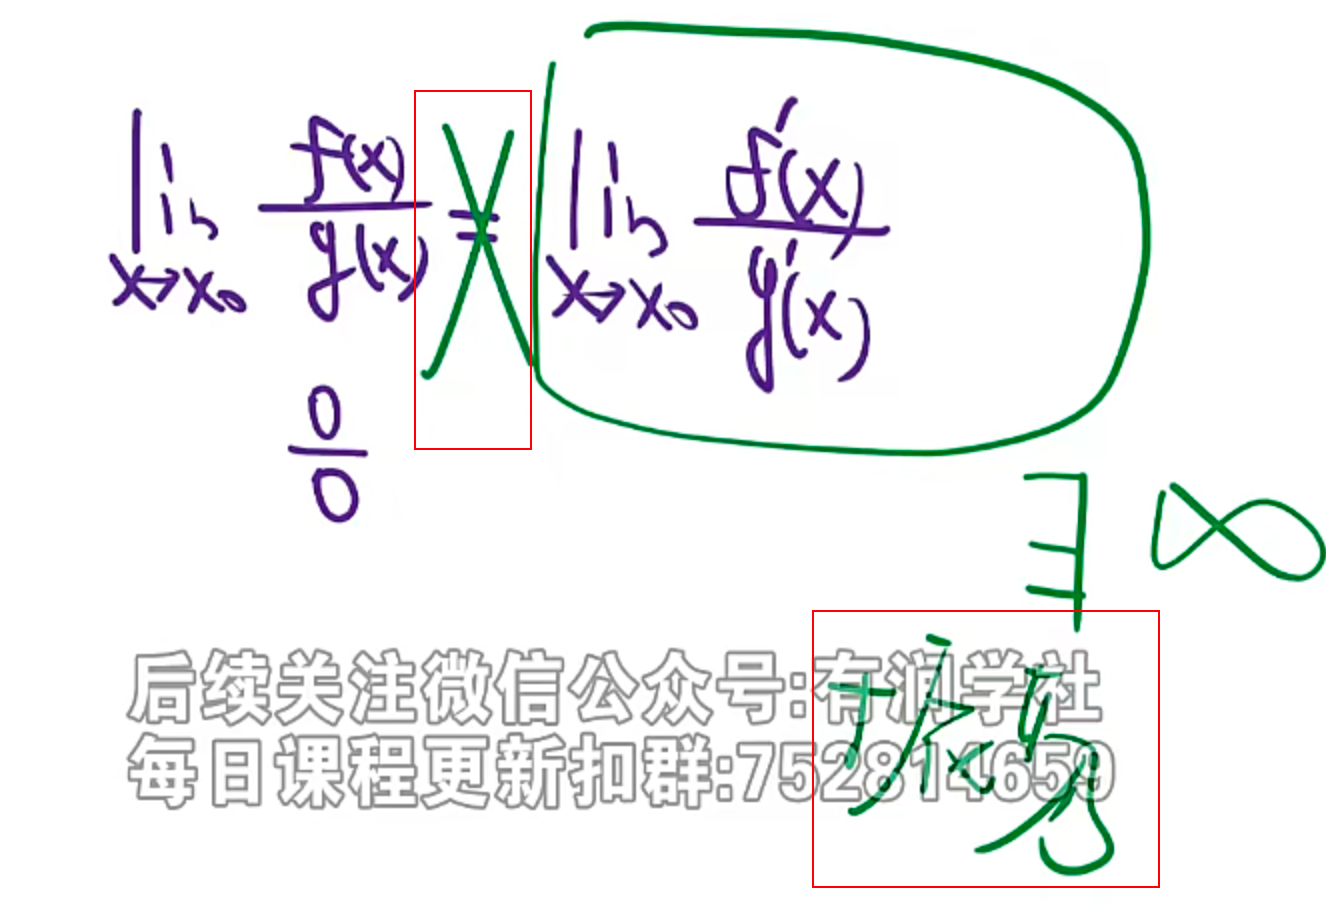 lim x→x₀ f(x)/g(x) = lim x→x₀ f'(x)/g'(x)
0/0
∃ ∞
后续关注微信公众号:有润学社
每日课程更新扣群:752814659